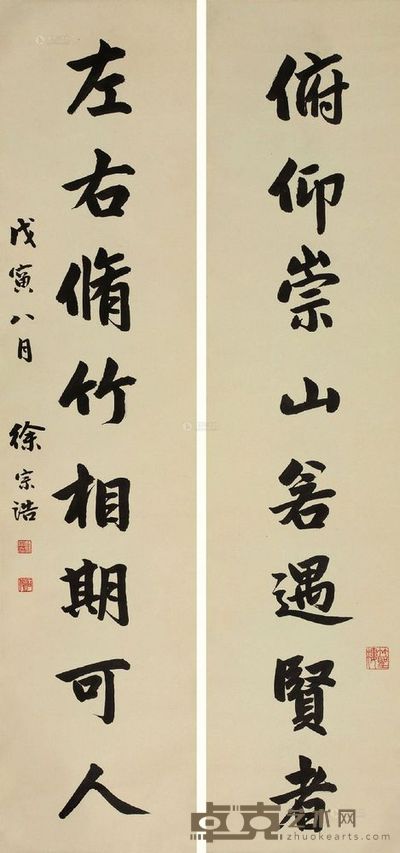 俯仰崇山若遇賢者
左右脩竹相期可人
戊寅八月 徐宗浩
卓克艺术网
zhuokearts.com